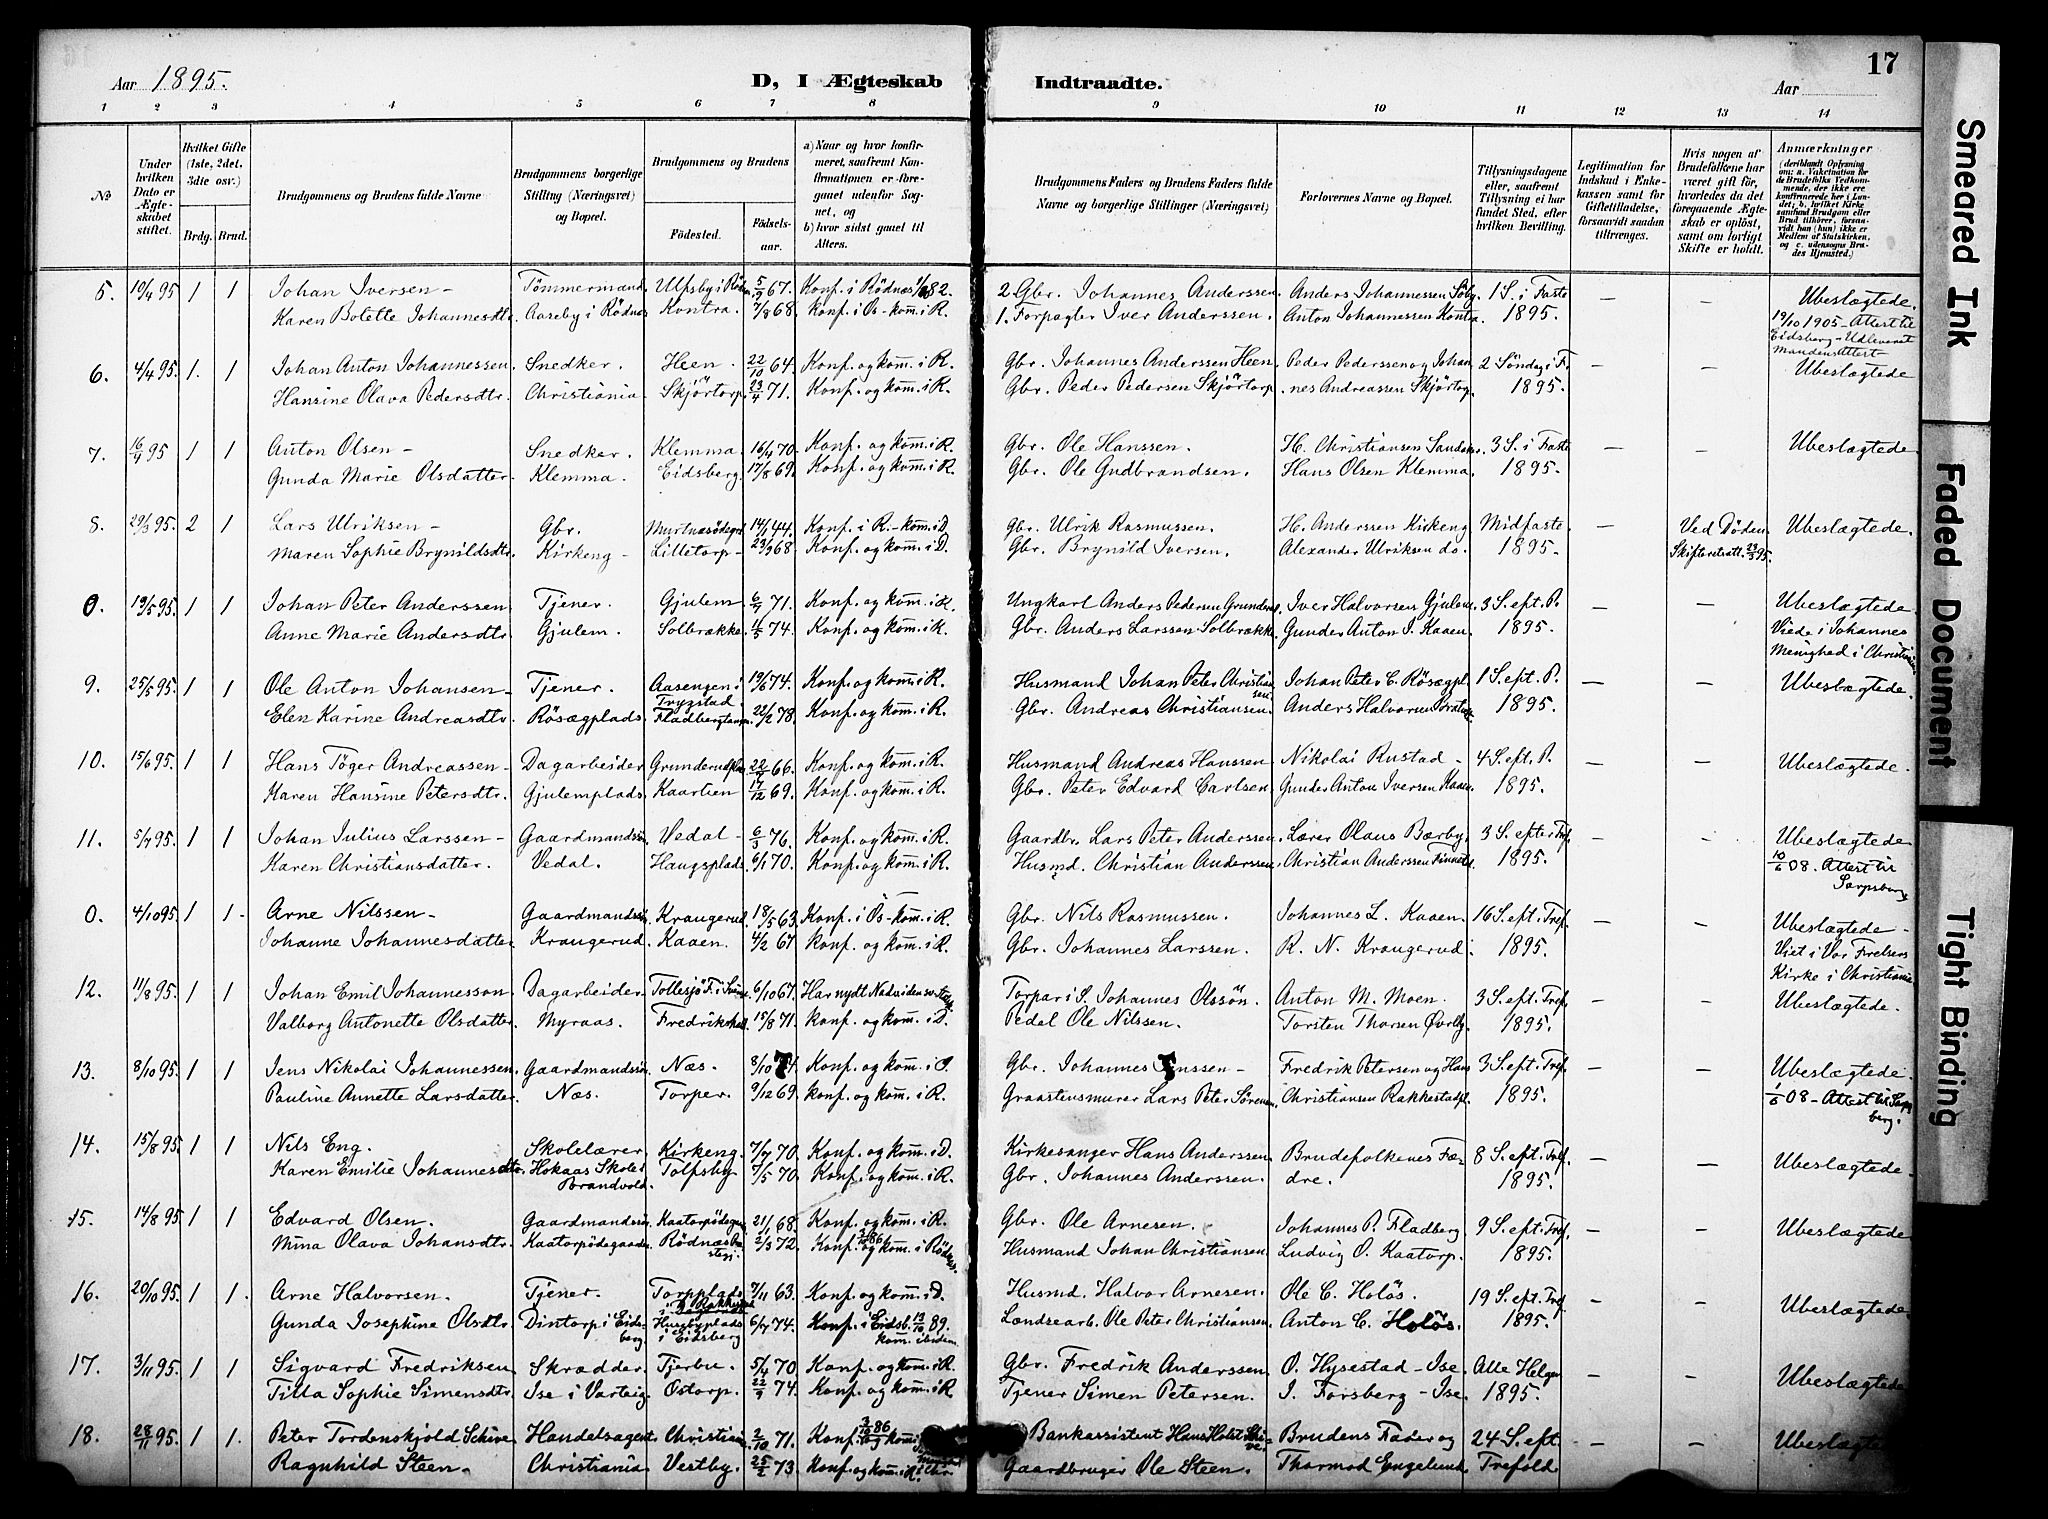 17
Aar 1895.
D, I Ægteskab Indtraadte.
Aar
1 2 3 4 5 6 7 8 9 10 11 12 13 14
No
Under hvilken Dato er Ægteskabet stiftet.
Hvilket Gifte (1ste, 2det, 3die osv.)
Brdg. Brud.
Brudgommens og Brudens fulde Navne
Brudgommens borgerlige Stilling (Næringsvei) og Bopæl.
Brudgommens og Brudens
Fødested.
Fødselsaar.
a) Naar og hvor konfirmeret, saafremt Konfirmationen er foregaaet udenfor Sognet, og
b) hvor sidst gaaet til Alters.
Brudgommens Faders og Brudens Faders fulde Navne og borgerlige Stillinger (Næringsvei)
Forlovernes Navne og Bopæl.
Tillysningsdagene eller, saafremt Tillysning ei har fundet Sted, efter hvilken Bevilling.
Legitimation for Indskud i Enkekassen samt for Giftetilladelse, forsaavidt saadan tiltrænges.
Hvis nogen af Brudefolkene har været gift før, hvorledes da det foregaaende Ægteskab er opløst, samt om lovligt Skifte er holdt.
Anmærkninger (deriblandt Oplysning om: a. Vakcination for de Brudefolks Vedkommende, der ikke ere konfirmerede her i Landet; b. hvilket Kirkesamfund Brudgom eller Brud tilhører, forsaavidt han (hun) ikke er Medlem af Statskirken, og c. udensogns Brudes Hjemsted.)
5. 10/4 95 1 1 Johan Iversen - Tømmermand Ulfsby i Rødn. 5/9 67. Konf. i Rødnæs 82. 2. Gbr. Johannes Anderssen. Anders Johannessen 1 S. i Faste — — Ubeslægtede.
Karen Bolette Johannesdtr. Aaseby i Rødnæs Kontra. 7/8 68. Konf. i Øs- kom. i R. 1. Forpagter Iver Anderssen. Anton Johannessen Kontra. 1895. 19/10 1905 - Attest til
Eidsberg - Udleveret
Mandens Attest -
6. 4/4 95. 1. 1 Johan Anton Johannessen Snedker. Heen. 22/10 64. Konf. og kom. i R. Gbr. Johannes Anderssen Heen Peder Pederssen og Johan 2 Søndag i F. — — Ubeslægtede
Hansine Olava Pedersdtr. Christiania Skjörtorp. 23/4 71. Konf. og kom. i R. Gbr. Peder Pedersen Skjörtorp. nes Andreassen Skjörtorp. 1895.
7. 16/4 95 1 1 Anton Olsen - Snedker. Klemma 16/4 70. Konf. og kom. i R. Gbr. Ole Hanssen. H. Christiansen 3 S. i Faste — — Ubeslægtede.
Gunda Marie Olsdatter. Klemma. Eidsberg. 17/8 69. Konf. og kom. i R. Gbr. Ole Gudbrandsen. Hans Olsen Klemma. 1895.
8. 29/3 95. 2 1 Lars Ulriksen - Gbr. 14/1 44. Konf. i R. - kom. i D. Gbr. Ulrik Rasmussen. H. Anderssen Kirkeng Midfaste — Ved Døden. Ubeslægtede.
Maren Sophie Brynildsdtr. Kirkeng - Lilletorp - 23/9 68. Konf. og kom. i D. Gbr. Brynild Iversen. Alexander Ulriksen do. 1895. Skifteretsatt. 23/3 95.
0. 19/5 95. 1 1 Johan Peter Anderssen Tjener. Gjulem. 6/7 71. Konf. og kom. i R. Ungkarl Anders Pedersen Iver Halvorsen Gjulem 3 S. eft. P. — — Ubeslægtede.
Anne Marie Andersdtr. Gjulem. Solbrække 11/5 74. Konf. og kom. i R. Gbr. Anders Larssen Solbrække Gunder Anton I. Kaaen. 1895. Viede i Johannes
Menighed i Christiania
9. 25/5 95. 1 1 Ole Anton Johansen - Tjener. Aasengen i Trygstad. 19/6 74. Konf. og kom. i R. Husmand Johan Peter Christiansen Johan Peter C. Røsægpl. 1 S. eft. P. — — Ubeslægtede.
Elen Karine Andreasdtr. Røsægplads 22/2 78. Konf. og kom. i R. Gbr. Andreas Christiansen. Anders Halvorsen 1895.
10. 15/6 95. 1 1 Hans Töger Andreassen - Dagarbeider 22/7 66. Konf. og kom. i R. Husmand Andreas Hanssen Nikolai Rustad - 4 S. eft. P. — — Ubeslægtede.
Karen Hansine Petersdtr. Gjulemplads. Kaartien 17/12 69. Konf. og kom. i R. Gbr. Peter Edvard Carlsen. Gunder Anton Iversen Kaaen. 1895.
11. 5/7 95. 1 1 Johan Julius Larssen - Gaardmandssøn Vedal - 6/3 76. Konf. og kom. i R. Gaardbr. Lars Peter Anderssen. Lærer Olaus Bærby. 3 S. efter Tref. — — Ubeslægtede.
Karen Christiansdatter. Vedal. Haugsplads 6/1 70. Konf. og kom. i R. Husmd. Christian Anderssen. Christian Anderssen 1895. 10/6 08. Attest til
Sarpsborg
0. 4/10 95. 1 1 - Arne Nilssen - Gaardmandssøn Kraugerud. 18/5 63. Konf. i Øs - kom. i R. Gbr. Nils Rasmussen. Johannes L. Kaaen. 16 S. eft. Tref. — — Ubeslægtede -
Johanne Johannesdatter Kraugerud. Kaaen. 4/2 67. Konf. og kom. i R. Gbr. Johannes Larssen. R. N. Kraugerud. 1895. Viet i Vor Frelsers
Kirke i Christiania
12. 11/8 95. 1 1 Johan Emil Johannesson. Dagarbeider. 6/10 67. Har nydt Nadv. Torpar i S. Johannes Olssön. Anton M. Moen. 3 S. eft. Tref. — — Ubeslægtede.
Valborg Antonette Olsdatter. Myraas. Fredrikshald. 15/8 71. Konf. og kom. i D. Pedel Ole Nilssen. Torsten Thorsen Øverby. 1895.
13. 8/10 95. 1 1 Jens Nikolai Johannessen. Gaardmandssøn. Næs. 8/10 74. Konf. og kom. i Gbr. Johannes Jenssen - Fredrik Petersen og Hans 3 S. eft. Tref. — — Ubeslægtede.
Pauline Annette Larsdatter. Næs. Torper. 9/12 69. Konf. og kom. i R. Graastensmurer Lars Peter Sörensen. Christiansen Rakkestadpl. 1895. 1/6 08 - Attest til Sarpsborg.
14. 15/8 95. 1 1 Nils Eng. Skolelærer Kirkeng. 7/7 70. Konf. og kom. i D. Kirkesanger Hans Anderssen. Brudefolkenes Fæ- 8 S. eft. Tref. — — Ubeslægtede.
Karen Emilie Johannesdtr. Hokaas Skole i Brandvold. Tolfsby 7/5 70. Konf. og kom. i R. Gbr. Johannes Anderssen. dre. 1895.
15. 14/8 95 1 1 Edvard Olsen. Gaardmandssøn Kaatorpödegaard 21/1 68. Konf. og kom. i R. Gbr. Ole Arnesen. Johannes P. Fladberg. 9 S. eft. Tref. — — Ubeslægtede
Mina Olava Johansdtr. Kaatorpödegaard. 2/3 72. Konf. og kom. i Rødnæs. Husmand Johan Christiansen. Ludvig O. Kaatorp. 1895.
16. 20/10 95. 1 1. Arne Halvorsen. Tjener. Torpplads 7/11 63. Konf. og kom. i D. Husmd. Halvor Arnesen. Ole C. Holös. 19 S. eft. Tref. — — Ubeslægtede
Gunda Josephine Olsdtr. Dintorp i Eidsberg i Eidsberg 6/7 74. Konf. i Eidsb. 13/10 89. kom. ibidem Landsearb. Ole Peter Christiansen. Anton C. Holös. 1895.
17. 3/11 95. 1 1 Sigvard Fredriksen Skrædder. Tjerbu. 5/4 70 Konf. og kom. i R. Gbr. Fredrik Anderssen O. Hysestad - Ise Alle Helgen — — Ubeslægtede.
Tilla Sophie Simensdtr. Ise i Varteig Östorp. 22/9 74. Konf. og kom. i R Tjener Simen Petersen. I. Forsberg - Ise. 1895.
18. 28/11 95. 1 1. Peter Tordenskjold Schive Handelsagent. Christiania 2/10 71. Konf. 3/10 86 Bankassistent Hans Holst Schive. Brudens Fader og 24 S. eft. — — Ubeslægtede
Ragnhild Steen. Christiania Vestby. 25/2 73. Konf. og kom. i R. Gaardbruger Ole Steen. Thormod Engelund. Trefold.
Smeared Ink
Faded Document
Tight Binding